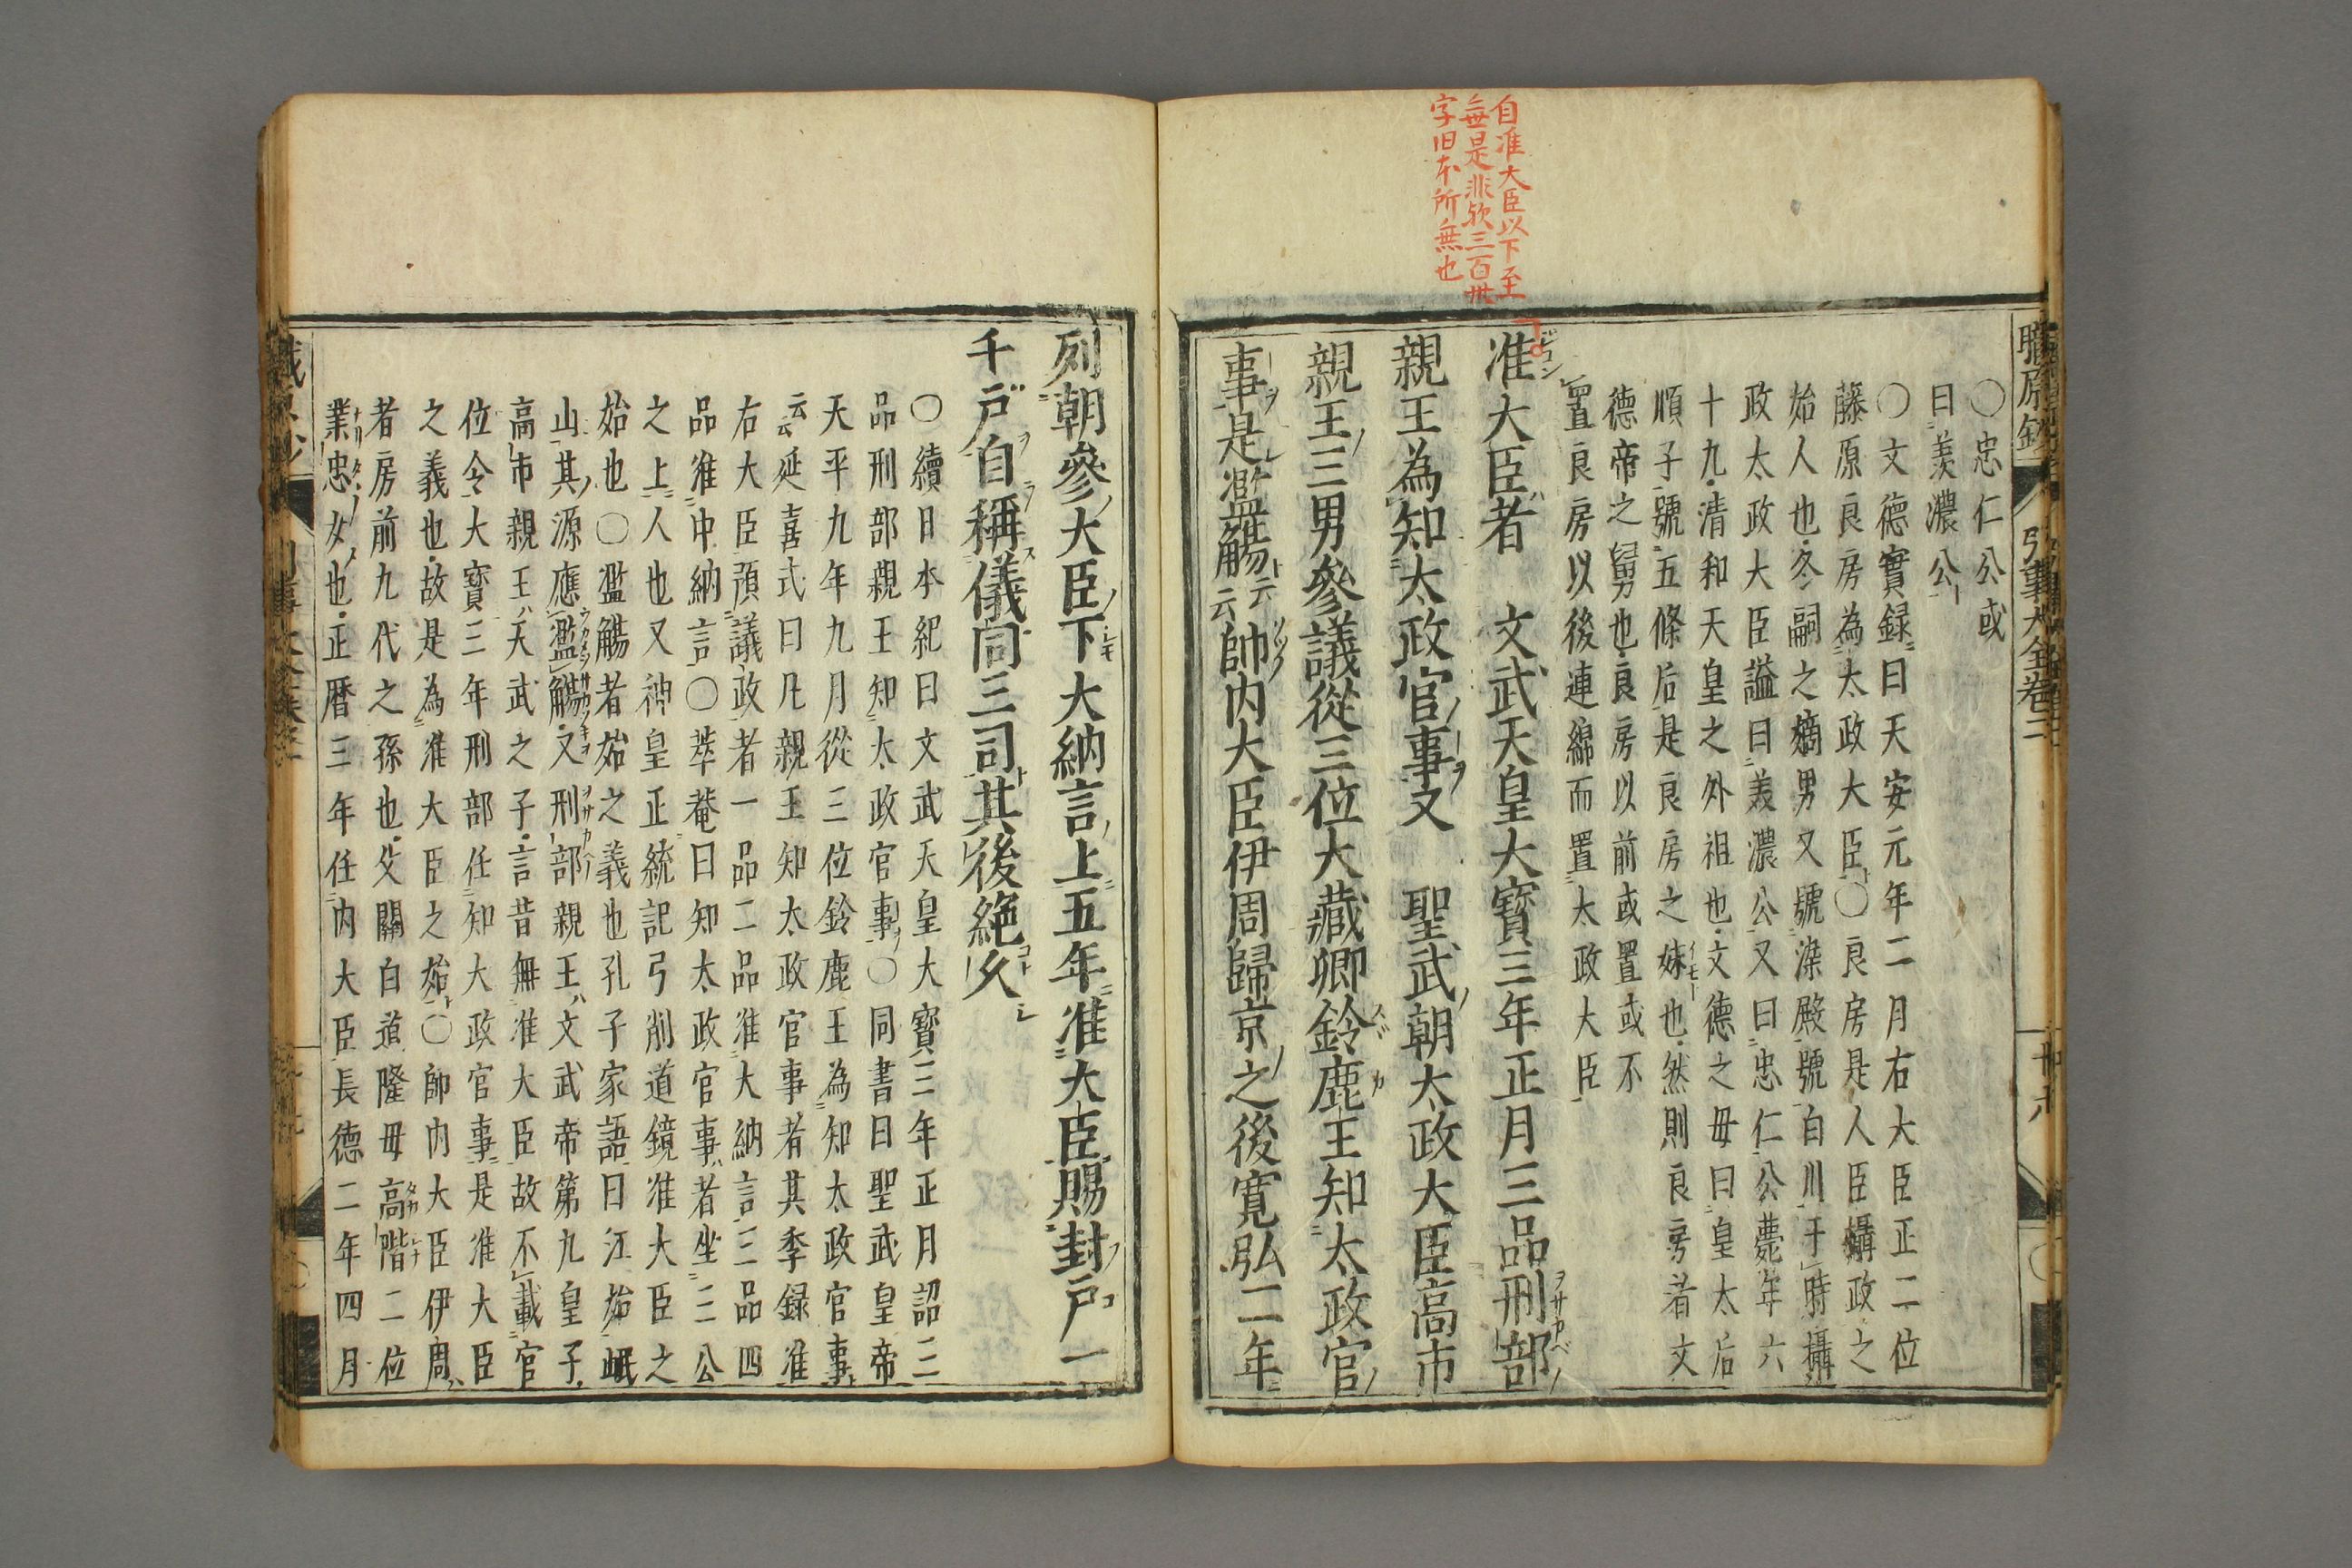 自准大臣以下至
無是非欤三百卅
字旧本所無也
職原鈔 引事大全卷二
〇忠仁公或
曰美濃公
〇文德實録曰天安元年二月右大臣正二位
藤原良房為太政大臣〇良房是人臣攝政之
始人也冬嗣之嫡男又號染殿號白川于時攝
政太政大臣謚曰美濃公又曰忠仁公薨年六
十九清和天皇之外祖也文德之母曰皇太后
順子號五條后是良房之妹也然則良房者文
德帝之舅也良房以前或置或不
置良房以後連綿而置太政大臣
准大臣者 文武天皇大寳三年正月三品刑部
親王為知太政官事又 聖武朝太政大臣高市
親王三男參議從三位大藏卿鈴鹿王知太政官
事是濫觴云云帥内大臣伊周歸京之後寛弘二年
列朝參大臣下大納言上五年准大臣賜封戸一
千戸自稱儀同三司其後絶久
〇續日本紀曰文武天皇大寳三年正月詔三
品刑部親王知太政官事〇同書曰聖武皇帝
天平九年九月從三位鈴鹿王為知太政官事
云云延喜式曰凡親王知太政官事者其季録准
右大臣預議政者一品二品准大納言三品四
品准中納言〇萃菴曰知太政官事者坐三公
之上人也又神皇正統記弓削道鏡准大臣之
始也〇濫觴者始之義也孔子家語曰江始岷
山其源應濫觴又刑部親王文武帝第九皇子
高市親王天武之子言昔無准大臣故不載官
位令大寳三年刑部任知大政官事是准大臣
之義也故是為准大臣之始〇帥内大臣伊周
者房前九代之孫也父關白道隆母高階二位
業忠女也正暦三年任内大臣長德二年四月